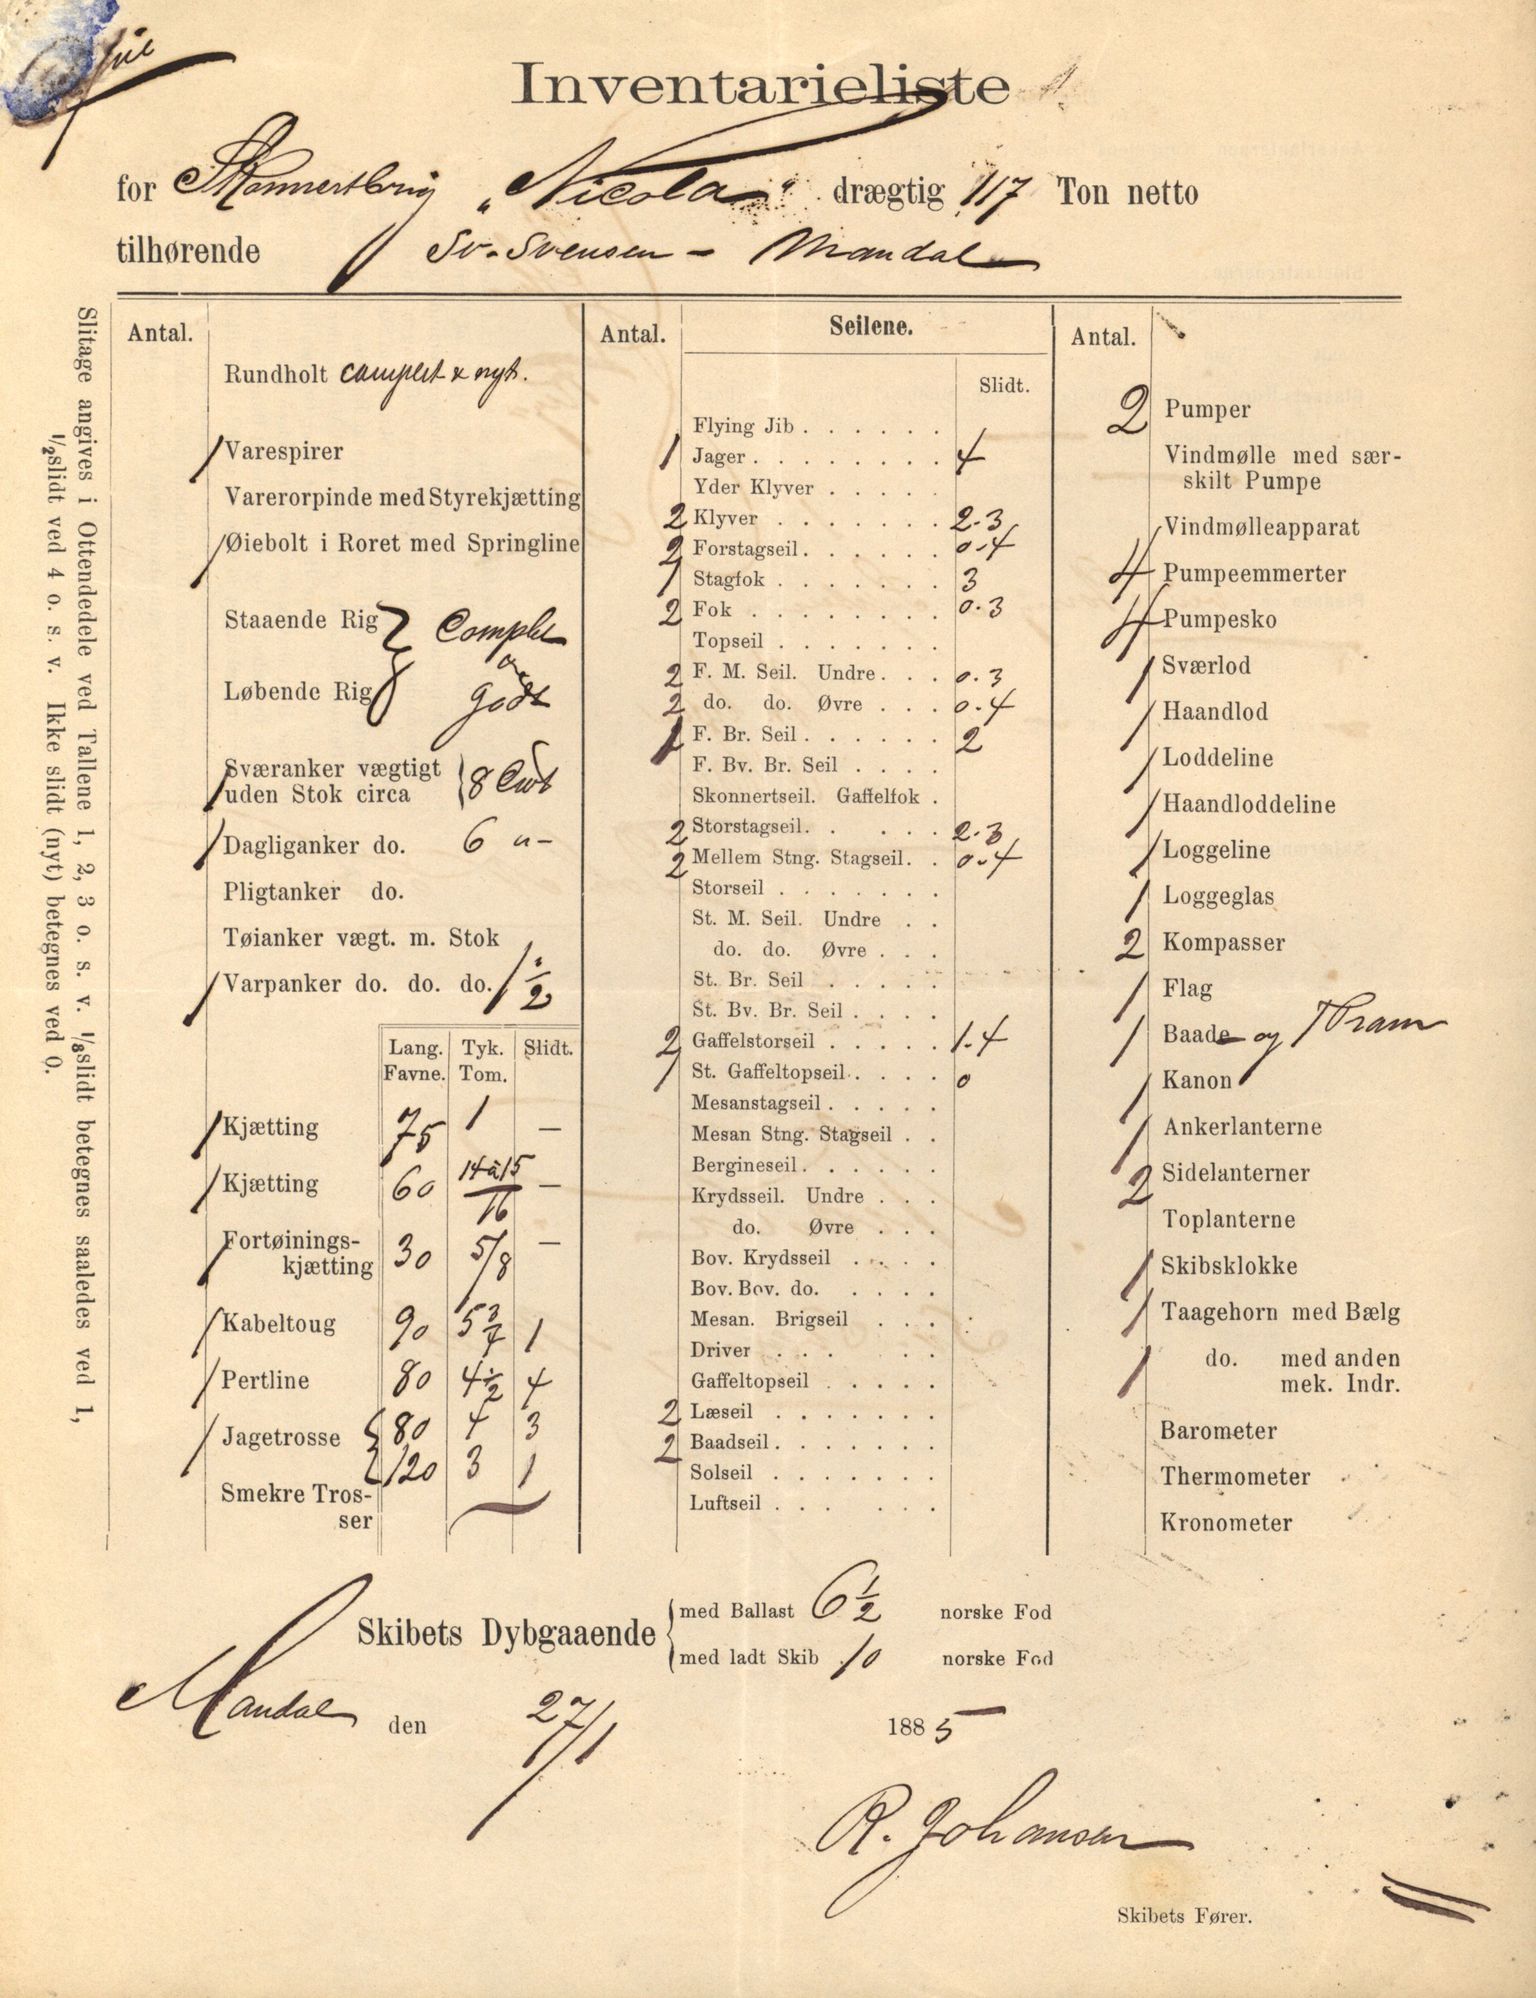 Inventarieliste
for Skonnertbrig „Nicola“ drægtig 117 Ton netto
tilhørende Sv. Svensen - Mandal
Slitage angives i Ottendedele ved Tallene 1, 2, 3 o. s. v. 1/8slidt betegnes saaledes ved 1,
1/2slidt ved 4 o. s. v. Ikke slidt (nyt) betegnes ved 0.
Antal.
Rundholt complet & nyt.
1 Varespirer
Varerorpinde med Styrekjætting
1 Øiebolt i Roret med Springline
Staaende Rig } Complet
Løbende Rig } og godt
1 Sværanker vægtigt
uden Stok circa } 8 Cwt
1 Dagliganker do. 6 "-
Pligtanker do.
Tøianker vægt. m. Stok
1 Varpanker do. do. do. 1 1/2
Lang. Tyk. Slidt.
Favne. Tom.
1 Kjætting 75 1 —
1 Kjætting 60 14 à 15/16 —
1 Fortøinings-
kjætting 30 5/8 —
1 Kabeltoug 90 5 3/4 1
1 Pertline 80 4 1/2 4
1 Jagetrosse { 80 4 3
{ 120 3 1
Smekre Tros-
ser
Antal. Seilene.
Slidt.
Flying Jib . . . . . .
1 Jager . . . . . . . . 4
Yder Klyver . . . . .
2 Klyver . . . . . . . 2-3
2 Forstagseil . . . . . . 0-4
1 Stagfok . . . . . . . 3
2 Fok . . . . . . . . 0-3
Topseil . . . . . . .
2 F. M. Seil. Undre . . . 0-3
2 do. do. Øvre . . . 0-4
1 F. Br. Seil . . . . . . 2
F. Bv. Br. Seil . . . .
Skonnertseil. Gaffelfok .
2 Storstagseil . . . . . 2-3
2 Mellem Stng. Stagseil . . 0-4
Storseil . . . . . . .
St. M. Seil. Undre . .
do. do. Øvre . . .
St. Br. Seil . . . . .
St. Bv. Br. Seil . . . .
2 Gaffelstorseil . . . . . 1-4
1 St. Gaffeltopseil . . . . 0
Mesanstagseil . . . . .
Mesan Stng. Stagseil . .
Bergineseil . . . . . .
Krydsseil. Undre . . .
do. Øvre . . .
Bov. Krydsseil . . . .
Bov. Bov. do. . . . .
Mesan. Brigseil . . .
Driver . . . . .
Gaffeltopseil . . . . .
2 Læseil . . . . . . .
2 Baadseil . . . . . . .
Solseil . . . . . . .
Luftseil . . . . . .
Antal.
2 Pumper
Vindmølle med sær-
skilt Pumpe
1 Vindmølleapparat
4 Pumpeemmerter
4 Pumpesko
1 Sværlod
1 Haandlod
1 Loddeline
1 Haandloddeline
1 Loggeline
1 Loggeglas
2 Kompasser
1 Flag
1 Baade og 1 Pram
1 Kanon
1 Ankerlanterne
2 Sidelanterner
Toplanterne
1 Skibsklokke
1 Taagehorn med Bælg
1 do. med anden
mek. Indr.
Barometer
Thermometer
Kronometer
Skibets Dybgaaende { med Ballast 6 1/2 norske Fod
{ med ladt Skib 10 norske Fod
Mandal den 27/1 1885
R. Johansen
Skibets Fører.